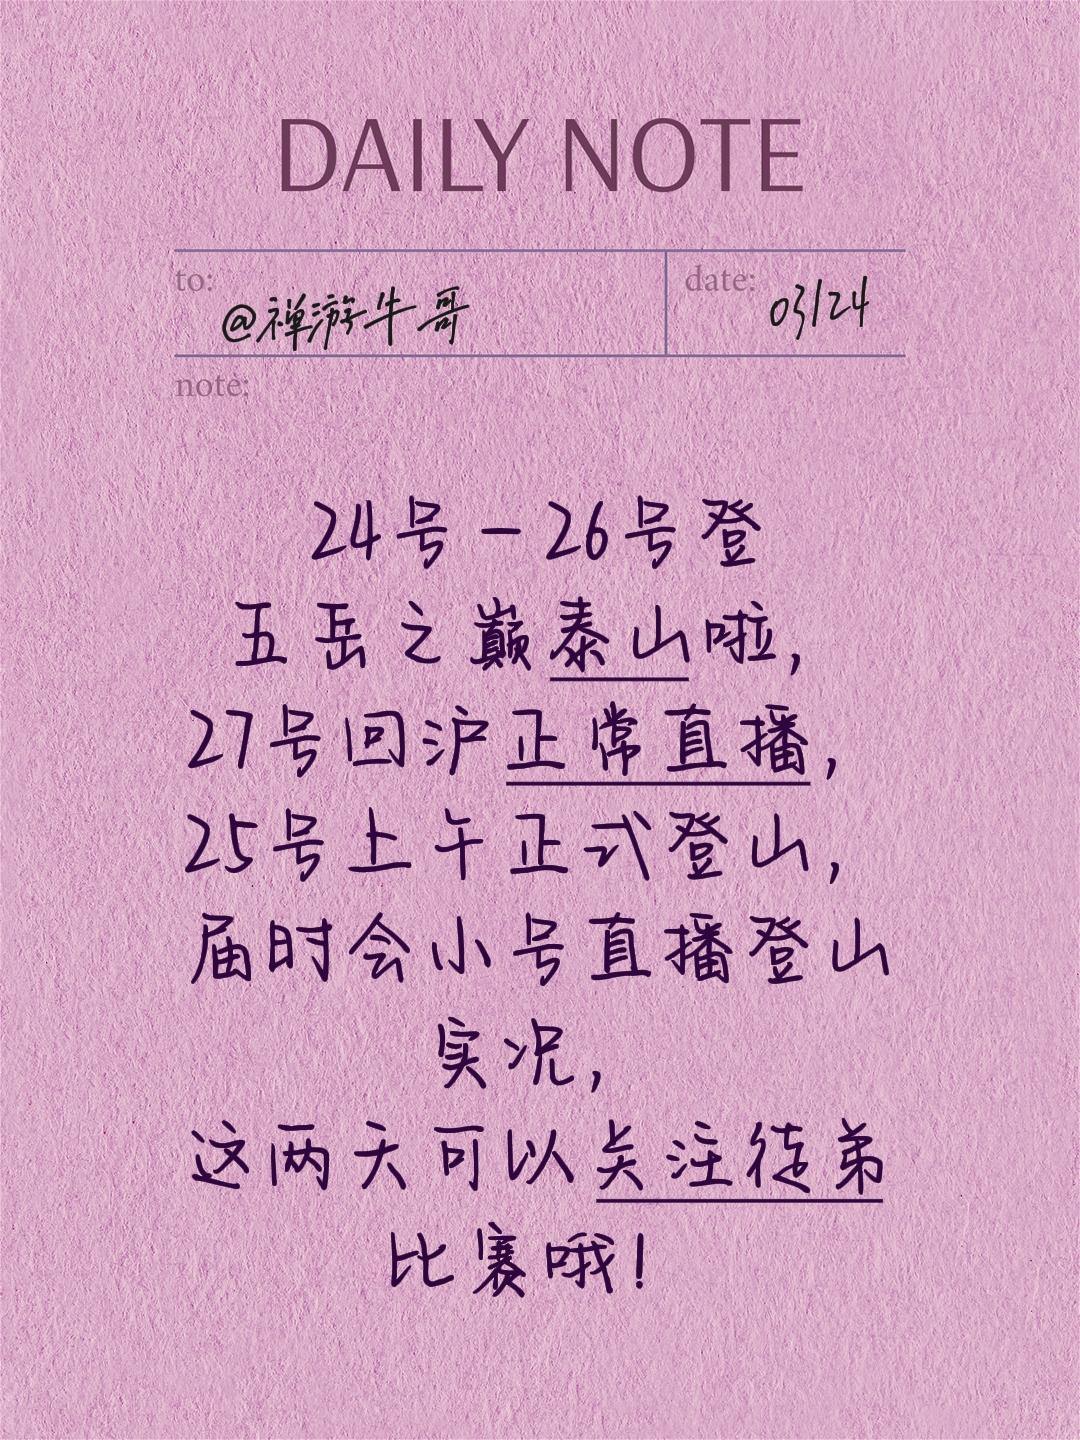 DAILY NOTE
to:
@禅游牛哥
date:
03/24
note:
24号-26号登
五岳之巅泰山啦,
27号回沪正常直播,
25号上午正式登山,
届时会小号直播登山
实况,
这两天可以关注徒弟
比赛哦!